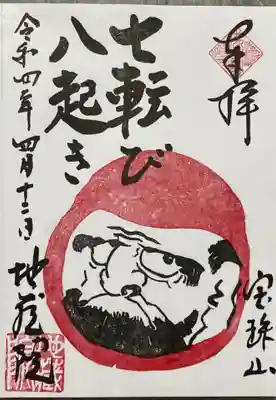 奉拝
宝珠山
七転び
八起き
令和四年四月十二日
地蔵院